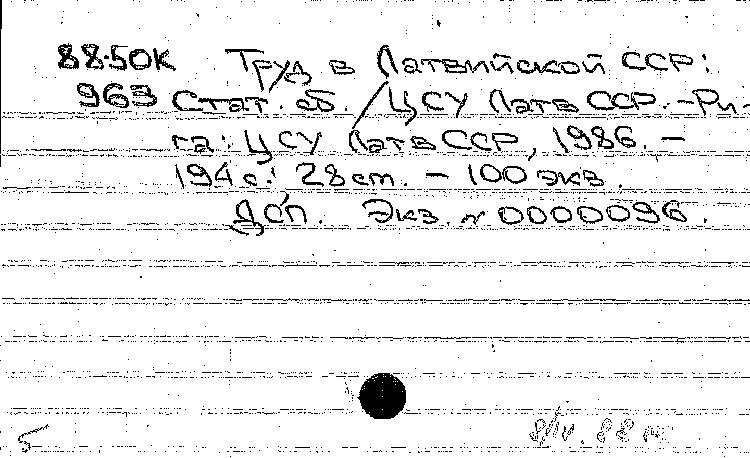 88-50К Труд в Латвийской ССР:
963 Стат. сб. / ЦСУ Латв ССР. - Ри-
га: ЦСУ Латв ССР, 1986. -
194 с.: 28 см. - 100 экз.
ДСП. Экз. № 0000096.
5
8/IV. 88 г.